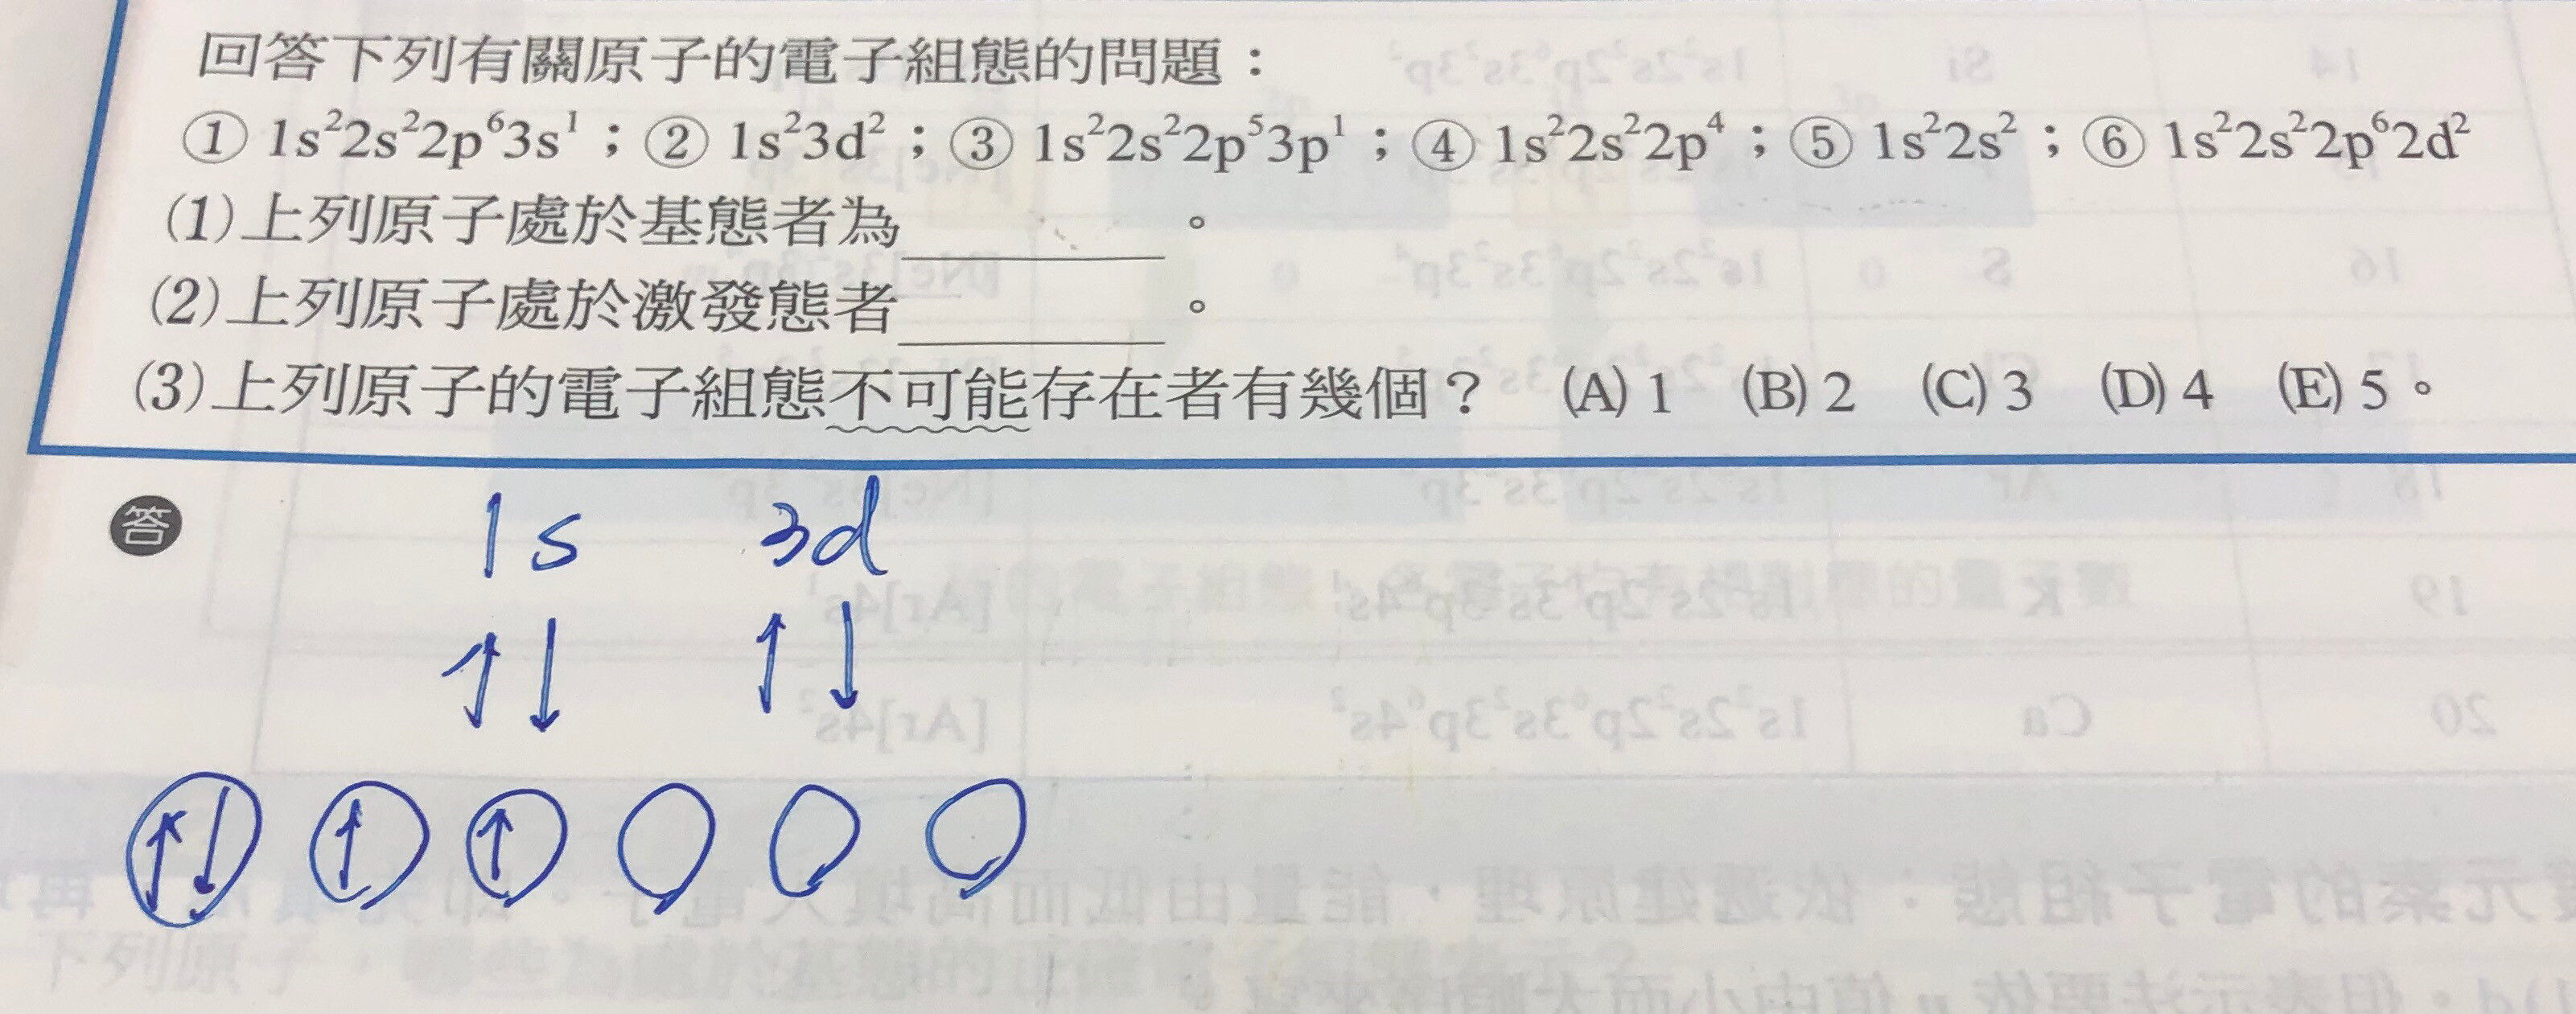 回答下列有關原子的電子組態的問題：
① 1s²2s²2p⁶3s¹；② 1s²3d²；③ 1s²2s²2p⁵3p¹；④ 1s²2s²2p⁴；⑤ 1s²2s²；⑥ 1s²2s²2p⁶2d²
(1)上列原子處於基態者為＿＿＿＿。
(2)上列原子處於激發態者＿＿＿＿。
(3)上列原子的電子組態不可能存在者有幾個？ (A) 1 (B) 2 (C) 3 (D) 4 (E) 5。
答
1s 3d
↑↓ ↑↓
↑↓ ↑ ↑